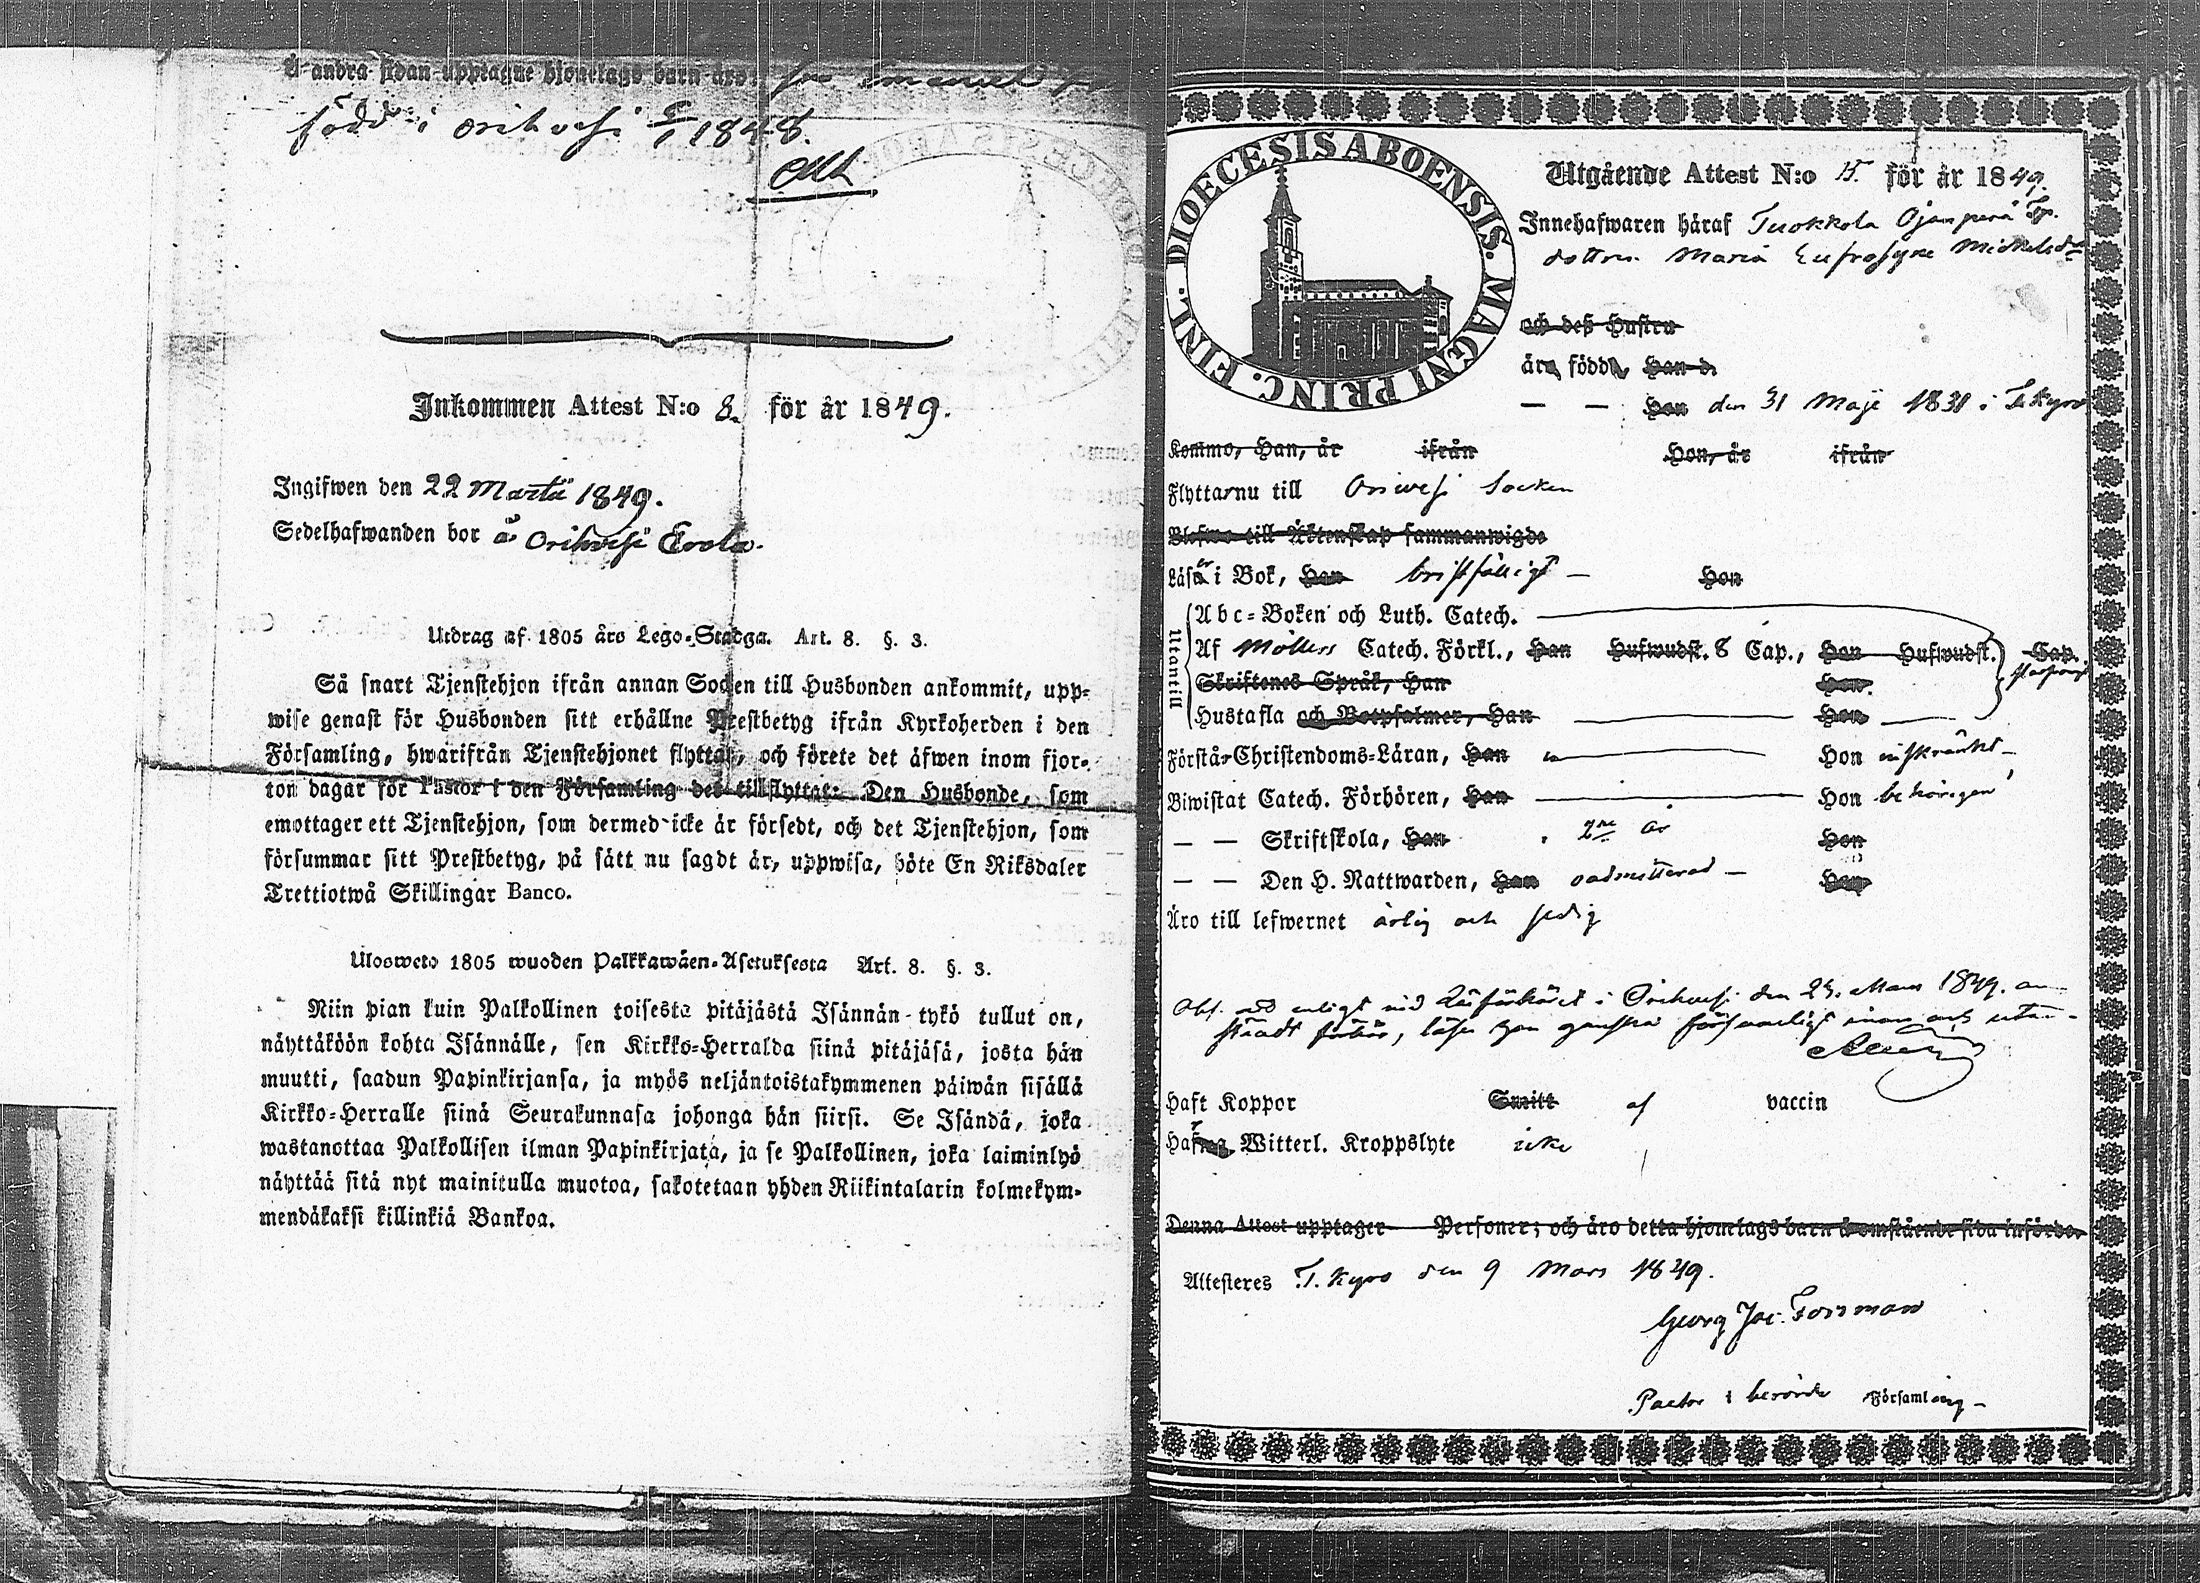 Å andra sidan upptagne hjonelags barn äro:
född i Orihvesi 6/1 1848.
Inkommen Attest N:o 8. för år 1849.
Ingifwen den 22 Martii 1849.
Sedelhafwanden bor å Orihvesi Erola.
Utdrag af 1805 års Lego-Stadga. Art. 8. §. 3.
Så snart Tjenstehjon ifrån annan Socken till Husbonden ankommit, upp=
wise genast för Husbonden sitt erhållne Prestbetyg ifrån Kyrkoherden i den
Församling, hwarifrån Tjenstehjonet flyttat, och förete det äfwen inom fjor=
ton dagar för Pastor i den Församling det tillflyttat: Den Husbonde, som
emottager ett Tjenstehjon, som dermed icke är försedt, och det Tjenstehjon, som
försummar sitt Prestbetyg, på sätt nu sagdt är, uppwisa, böte En Riksdaler
Trettiotwå Skillingar Banco.
Uloswето 1805 wuoden Palkkawäen-Asetuksesta Art. 8. §. 3.
Niin pian kuin Palkollinen toisesta pitäjästä Isännän tykö tullut on,
näyttäköön kohta Isännälle, sen Kirkko=Herralda siinä pitäjäsä, josta hän
muutti, saadun Papinkirjansa, ja myös neljäntoistakymmenen päiwän sisällä
Kirkko=Herralle siinä Seurakunnasa johonga hän siirsi. Se Isändä, joka
wastanottaa Palkollisen ilman Papinkirjata, ja se Palkollinen, joka laiminlyö
näyttää sitä nyt mainitulla muotoa, sakotetaan yhden Riikintalarin kolmekym=
mendäkaksi killinkiä Bankoa.
DIOECESIS ABOENSIS. MAGNI PRINC. FINL.
Utgående Attest N:o 15. för år 1849.
Innehafwaren häraf Tuokkola Ojanperä Tp.
dottren Maria Eufrosyne Mickelsdr
och deß Hustru
äro födde, Han d.
— — Hon den 31 Maji 1831 i T.kyro
Kommo, Han, år ifrån Hon, år ifrån
Flyttar nu till Oriwesi Socken
Blefwo till Äktenskap sammanwigde
Läser i Bok, Han bristfälligt — Hon
Utantill
Abc=Boken och Luth. Catech.
Af Möllers Catech. Förkl., Han Hufwudst. 8 Cap., Hon Hufwudst. Cap.
Skriftenes Språk, Han Hon
Hustafla och Botpsalmer, Han Hon
Förstår Christendoms=Läran, Han Hon inskränkt
Biwistat Catech. Förhören, Han Hon behörigen
— — Skriftskola, Han 2ne år Hon
— — Den H. Nattwarden, Han oadmitterad — Hon
Äro till lefwernet ärlig och sedig
Haft Koppor Smitt af vaccin
Hafwa Witterl. Kroppslyte icke
Denna Attest upptager Personer; och äro detta hjonelags barn å omstående sida införde.
Attesteres T. Kyro den 9 Mars 1849.
Georg Jac. Forsman
Pastor i berörde Församling —